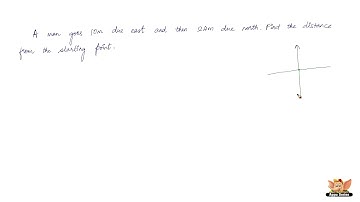 A man goes 10m due east and then 24m due north. Find the distance
from the starting point.